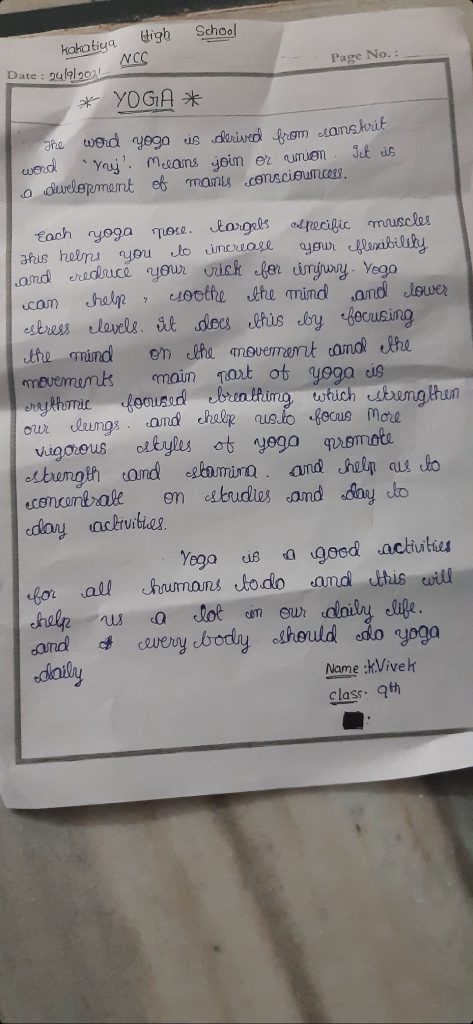 Kakatiya High School
NCC
Page No. :
Date : 24/9/2021
* YOGA *
The word yoga is derived from sanskrit
word 'Yuj'. Means join or union. It is
a development of mans consciouncess.
Each yoga pose. targets specific muscles
This helps you to increase your flexibility
and reduce your risk for injury. Yoga
can help, soothe the mind and lower
stress levels. it does this by focusing
the mind on the movement and the
movements main part of yoga is
rythmic focused breathing which strengthen
our lungs. and help us to focus More
vigorous styles of yoga promote
strength and stamina. and help us to
concentrate on studies and day to
day activities.
Yoga is a good activities
for all humans to do and this will
help us a lot in our daily life.
and every body should do yoga
daily
Name : K.Vivek
class: 9th